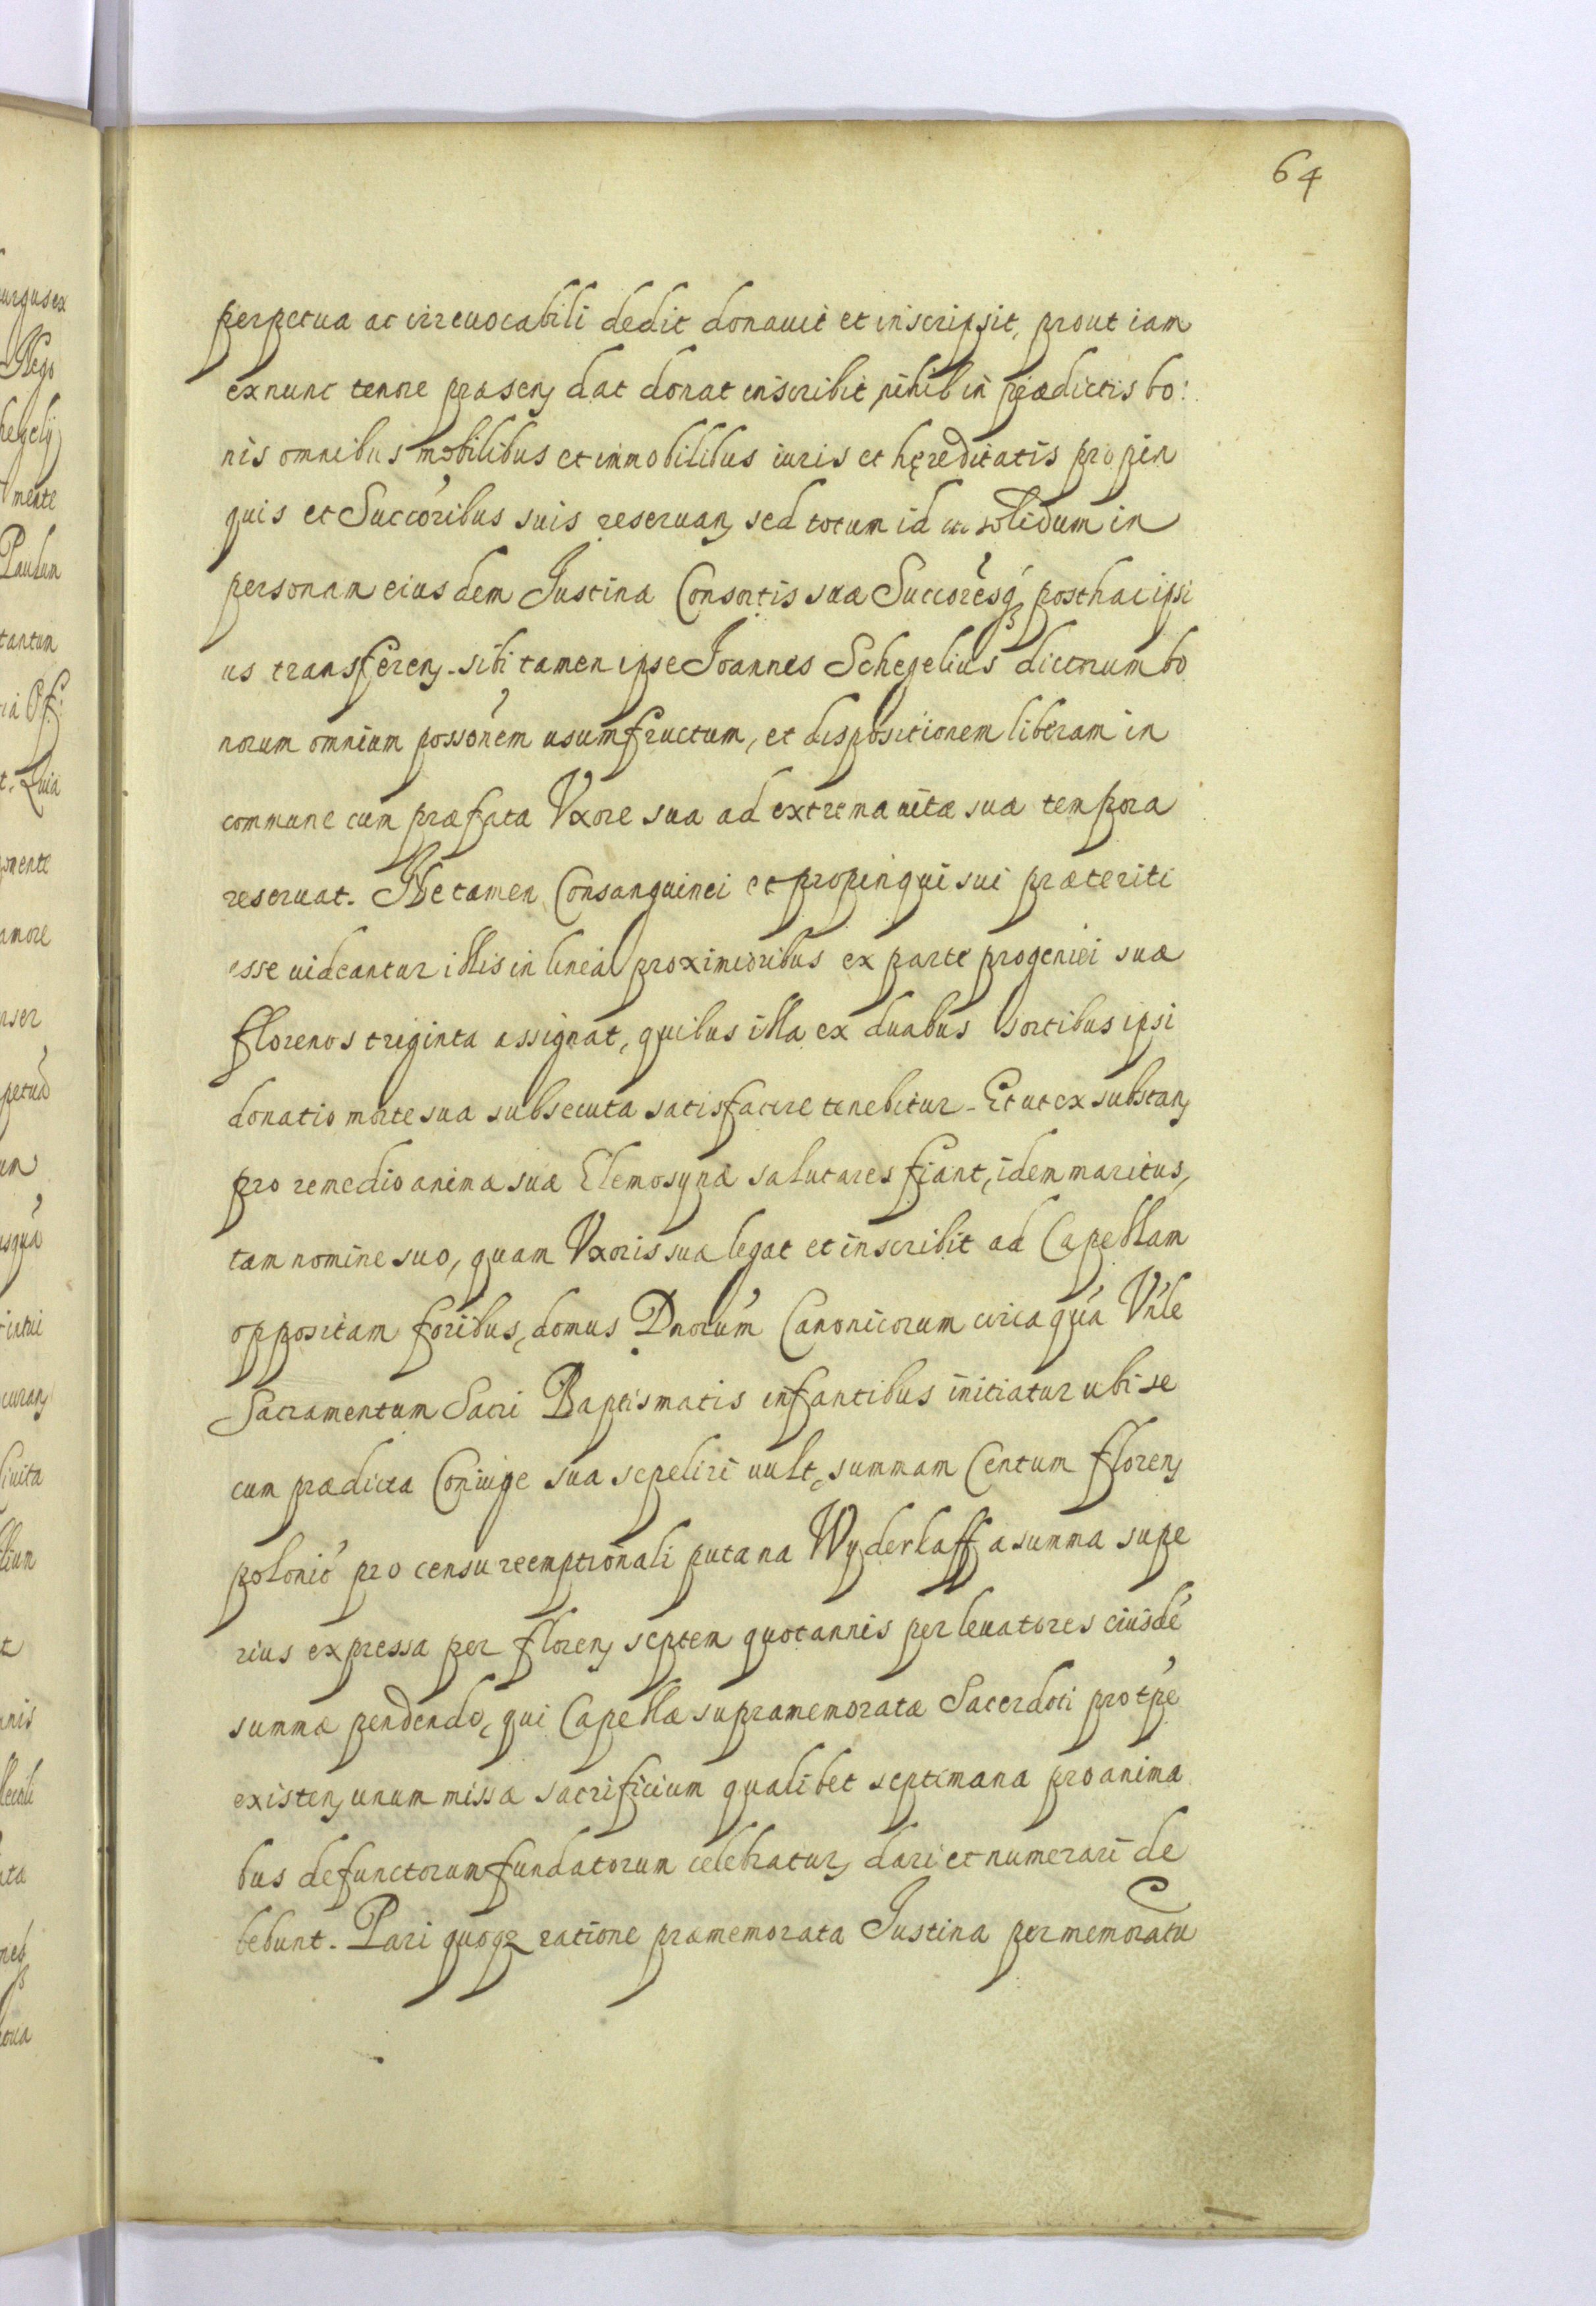 64
perpetua ac irreuocabili dedit donauit et inscripsit, prout iam
ex nunc tenore praesen dat donat inscribit nihil in praedictis bo:
nis omnibus mobilibus et immobilibus iuris et hęreditatis propin
quis et Succoribus suis reseruan sed totum id in solidum in
personam eiusdem Iustina Consortis suae Succoresq posthac ipsi
us transferen. sibi tamen ipse Ioannes Schegelius dictorum bo
norum omnium possonem usumfructum, et dispositionem liberam in
commune cum praefata Vxore sua ad extrema uitae suae tempora
reseruat. Ne tamen Consanguinei et propinqui sui praeteriti
esse uideantur illis in linea proximioribus ex parte progeniei suae
florenos triginta assignat, quibus illa ex duabus sortibus ipsi
donatio morte sua subsecuta satisfacere tenebitur. Et ut ex substan
pro remedio animae suae Elemosynae salutares fiant, idem maritus,
tam nomine suo, quam Vxoris suae legat et inscribit ad Capellam
oppositam foribus, domus Dnorum Canonicorum circa quá Vnle
Sacramentum Sacri Baptismatis infantibus initiatur ubi se
cum praedicta Coniuge sua sepeliri uult, summam Centum floren
polonic pro censu reemptionali puta na Wyderkaff a summa supe
rius expressa per floren septem quotannis per leuatores eiusdé
summae pendendo, qui Capellae supramemoratae Sacerdoti pro tpe
existen unum missae sacrificium qualibet septimana pro anima
bus defunctorum fundatorum celebratur, dari et numerari de
bebunt. Pari quoq ratione praememorata Iustina per memoratu